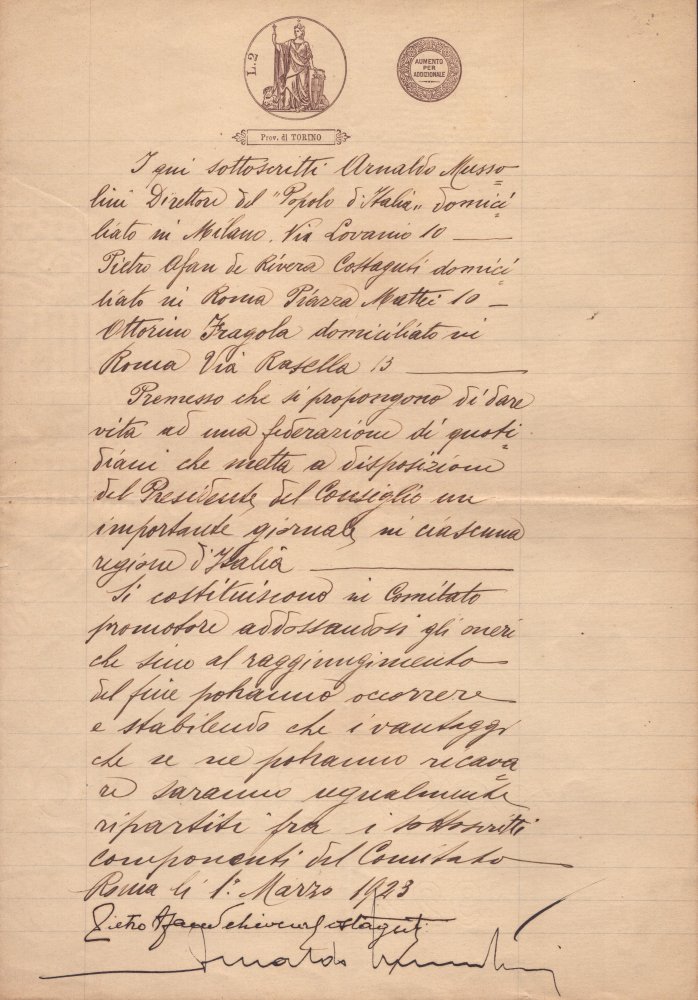 L.2
AUMENTO
PER
ADDIZIONALE
Prov. di TORINO
I qui sottoscritti Arnaldo Musso=
lini Direttore del "Popolo d'Italia" domici=
liato in Milano. Via Lovanio 10 —
Pietro Afan de Rivera Costaguti domici=
liato in Roma Piazza Mattei 10 —
Ottorino Fragola domiciliato in
Roma Via Rasella 13 —
Premesso che si propongono di dare
vita ad una federazione di quoti=
diani che metta a disposizione
del Presidente del Consiglio un
importante giornale in ciascuna
regione d'Italia —
Si costituiscono in Comitato
promotore addossandosi gli oneri
che sino al raggiungimento
del fine potranno occorrere
e stabilendo che i vantaggi
che se ne potranno ricava=
re saranno ugualmente
ripartiti fra i sottoscritti
componenti del Comitato
Roma li 1º Marzo 1923
Pietro Afan de Rivera Costaguti
Arnaldo Mussolini